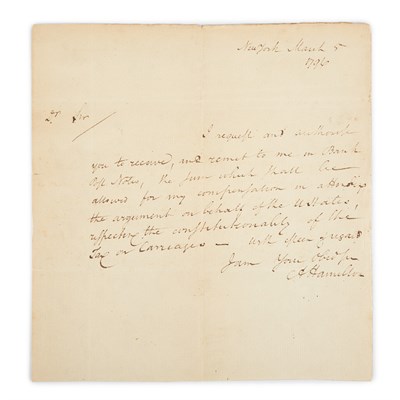 New York March 5
1796
Dr Sir
I request and authorise
you to receive, and remit to me in Bank
Post Notes, the sum which shall be
allowed for my compensation in attending
the argument on behalf of the U States,
respecting the constitutionality of the
Tax on Carriages — With esteem & regard
I am Your Obed ser
A Hamilton